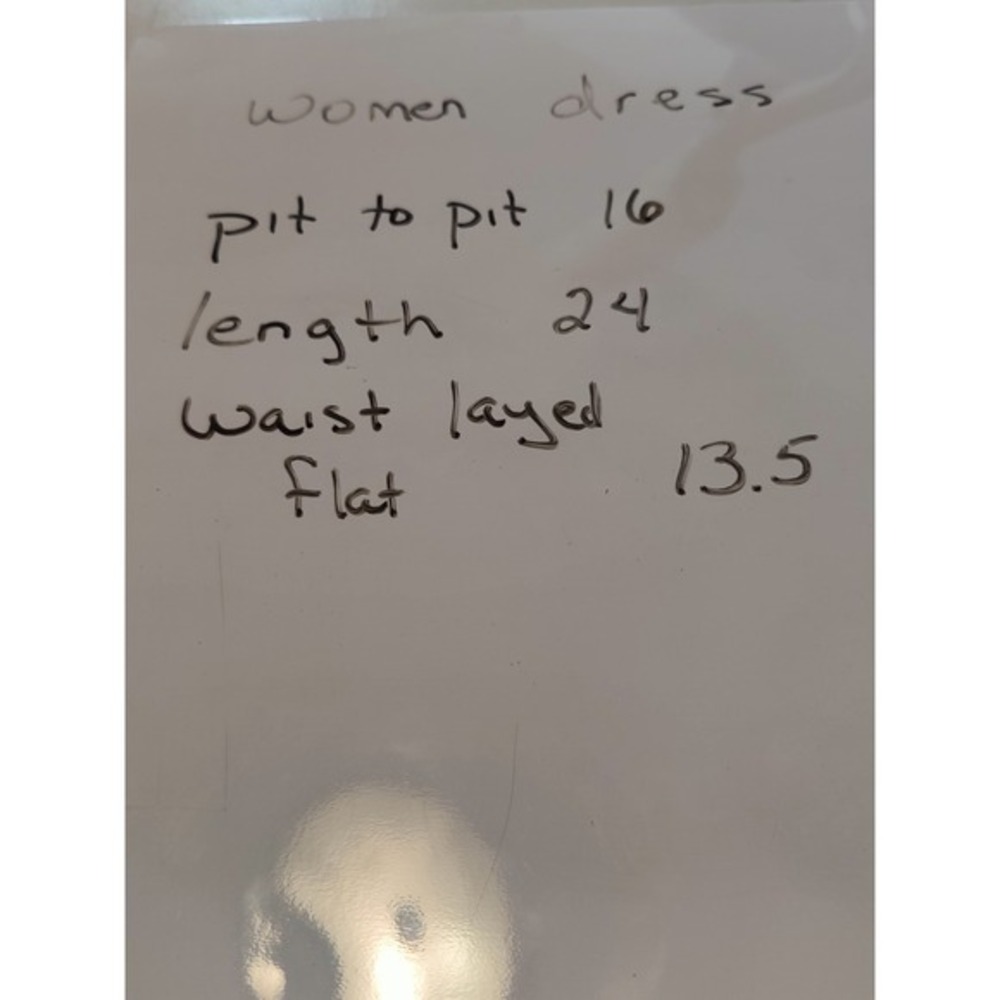 women dress
pit to pit 16
length 24
waist layed
flat 13.5